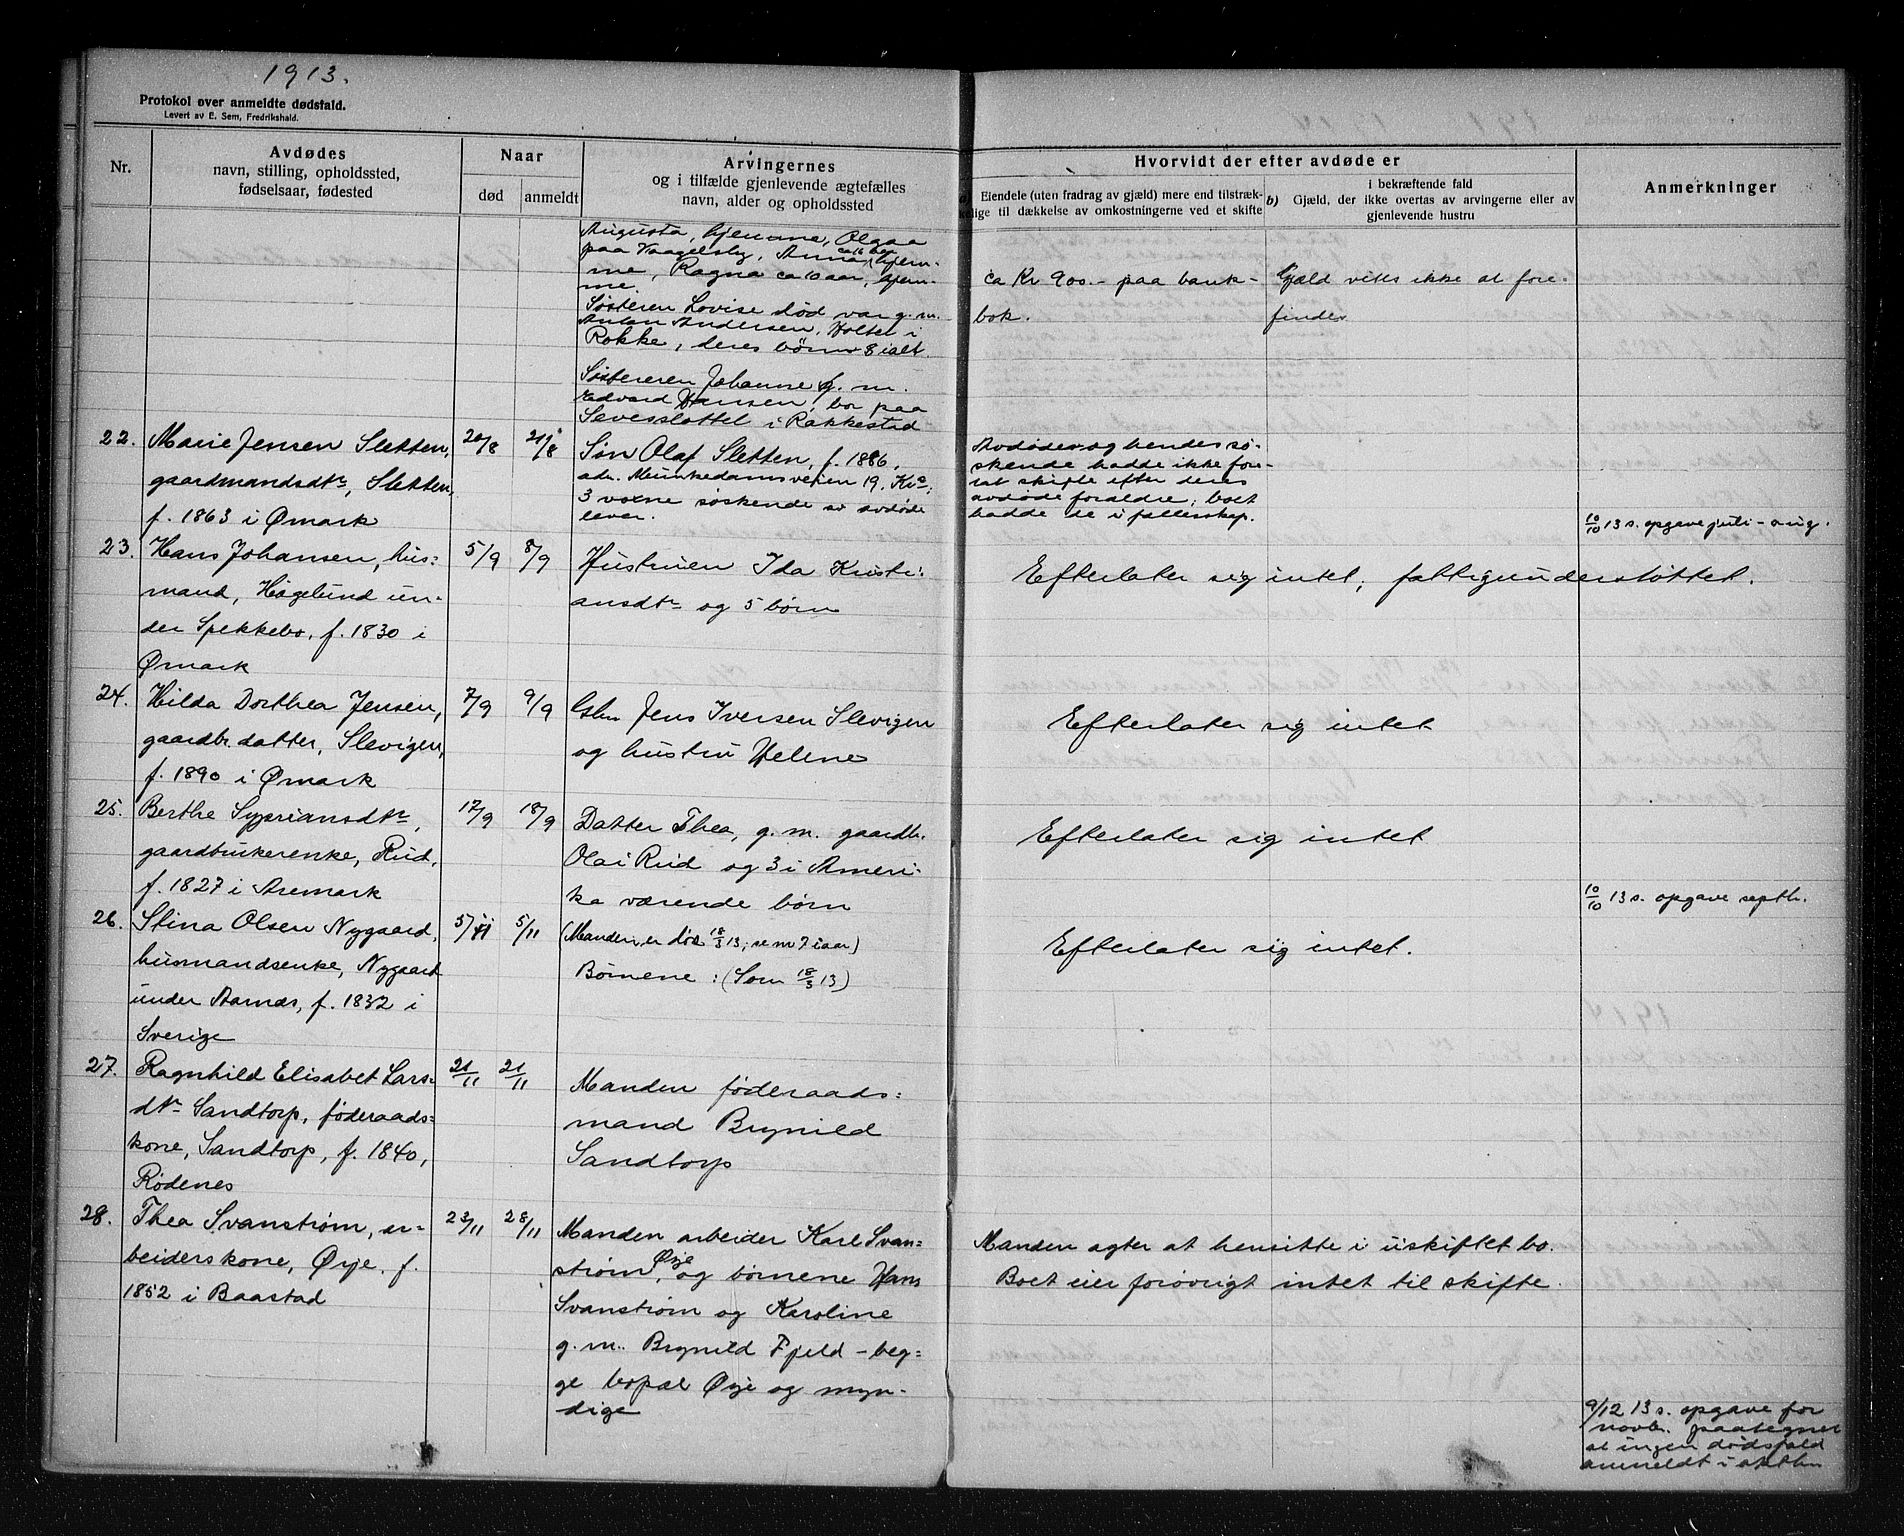 1913.
Protokol over anmeldte dødsfald.
Levert av E. Sem, Fredrikshald.
Nr.
Avdødes
navn, stilling, opholdssted,
fødselsaar, fødested
Naar
død
anmeldt
Arvingernes
og i tilfælde gjenlevende ægtefælles
navn, alder og opholdssted
Hvorvidt der efter avdøde er
Eiendele (uten fradrag av gjæld) mere end tilstræk-
lige til dækkelse av omkostningerne ved et skifte
i bekræftende fald
b) Gjæld, der ikke overtas av arvingerne eller av
gjenlevende hustru
Anmerkninger
Augusta, hjemme, Olgaa
paa Kaagelsby, Anna, hjem-
me, Ragna ca 10 aar, hjem-
me.
Søsteren Lovise død var g. m.
Anton Andersen, Holtet i
Rokke, deres børn 8 ialt.
Søsteren Johanne g. m.
Edvard Hansen, bor paa
i Rakkestad
ca Kr 900.- paa bank-
bok.
Gjæld vites ikke at fore-
findes
22.
Marie Jensen Sletten,
gaardmandsdtr, Sletten,
f. 1863 i Ømark
20/8
21/8
Søn Olaf Sletten, f. 1886,
adr. Munkedamsveien 19, Kra;
3 voxne søskende av avdøde
lever.
Avdøde og hendes sø-
skende hadde ikke fore-
tat skifte efter deres
avdøde foraldre; boet
hadde de i fællesskap.
10/10 13 s. opgave juli - aug.
23.
Hans Johansen, hus=
mand, Høgelund un-
der Spekkebo, f. 1830 i
Ømark
5/9
8/9
Hustruen Ida Kristi-
ansdtr og 5 børn
Efterlater sig intet; fattigunderstøttet.
24.
Hilda Dorthea Jensen,
gaardbr.datter, Slevigen,
f. 1890 i Ømark
7/9
9/9
Gbr. Jens Iversen Slevigen
og hustru Helene
Efterlater sig intet
25.
Berthe Sypriansdtr,
gaardbrukerenke, Rud,
f. 1827 i Aremark
17/9
18/9
Datter Thea, g. m. gaardbr.
Ola i Rud og 3 i Ameri-
ka værende børn
Efterlater sig intet
10/10 13 s. opgave septbr.
26.
Stina Olsen Nygaard,
husmandsenke, Nygaard
under Aarnæs, f. 1832 i
Sverige
5/11
5/11
(Manden er død 18/3 13; se nr 7 iaar)
Børnene: (Som 18/3 13)
Efterlater sig intet.
27.
Ragnhild Elisabet Lars=
dtr Sandtorp, føderaads=
kone, Sandtorp, f. 1840,
Rødenes
21/11
21/11
Manden føderaads=
mand Brynild
Sandtorp
28.
Thea Svanstrøm, ar-
beiderskone, Ørje, f.
1852 i Baastad
23/11
28/11
Manden arbeider Karl Svan=
strøm, Ørje og børnene Hans
Svanstrøm og Karoline
g. m. Brynild Fjeld - beg=
ge bopæl Ørje og myn-
dige
Manden agter at hensitte i uskiftet bo.
Boet eier forøvrigt intet til skifte.
9/12 13 s. opgave for
novbr. paategnet
at ingen dødsfald
anmeldt i oktbr